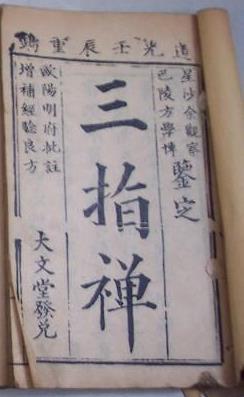 道光壬辰重鐫
星沙余觀察
巴陵方學博
鑒定
三指禅
歐陽明府批註
增補經驗良方
大文堂發兌